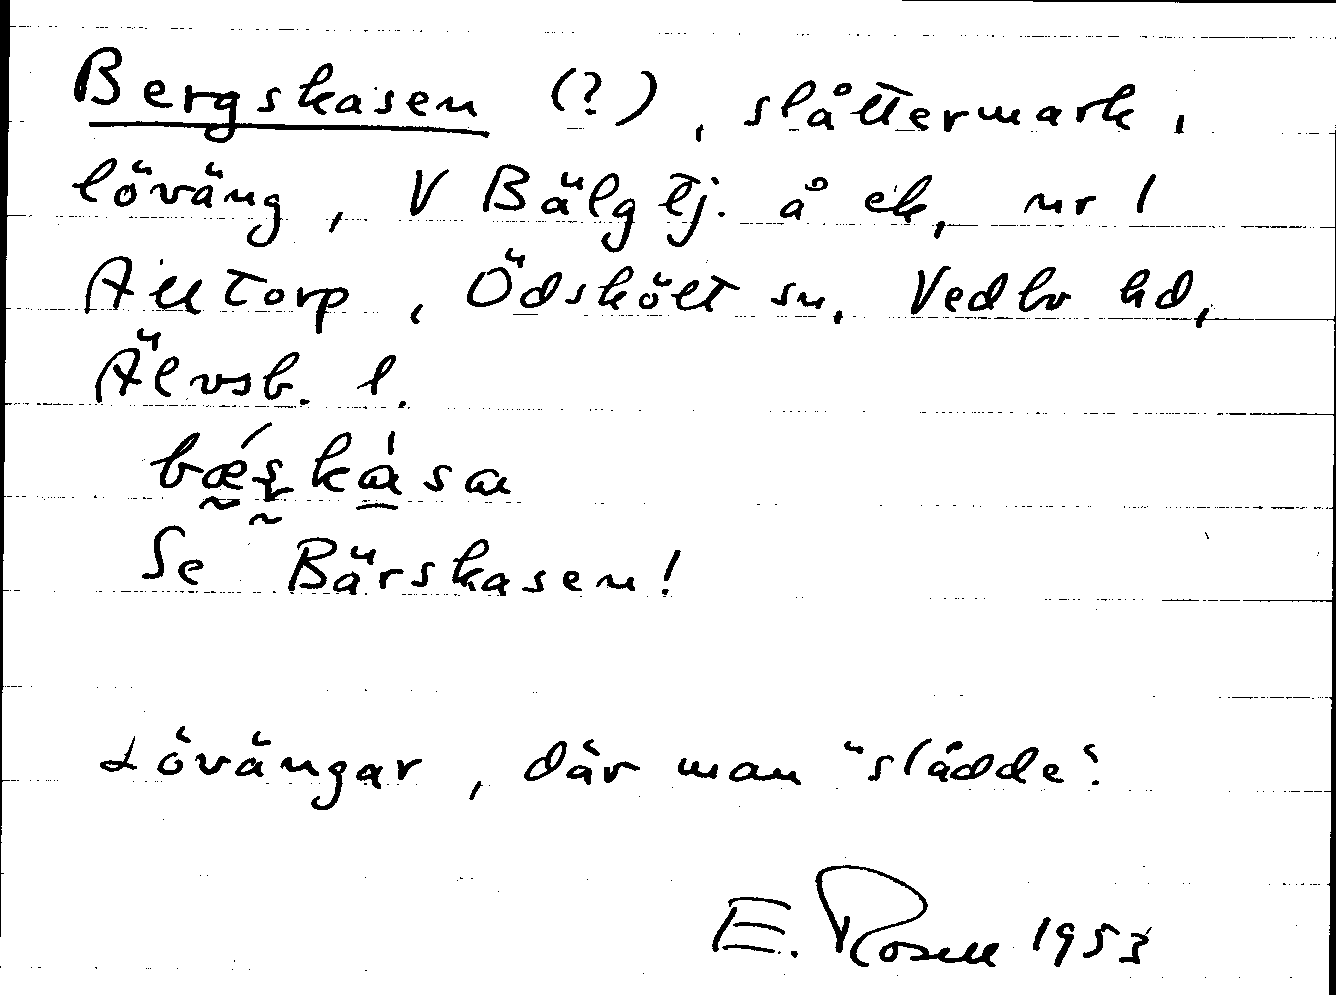 Bergskasen (?), slåttermark,
löväng, V Bälg tj. å ek, nr 1
Alltorp, Ödskölt sn, Vedbo hd,
Älvsb. l.
Se Bärskasen!
Lövängar, där man "slådde".
E. Rosell 1953